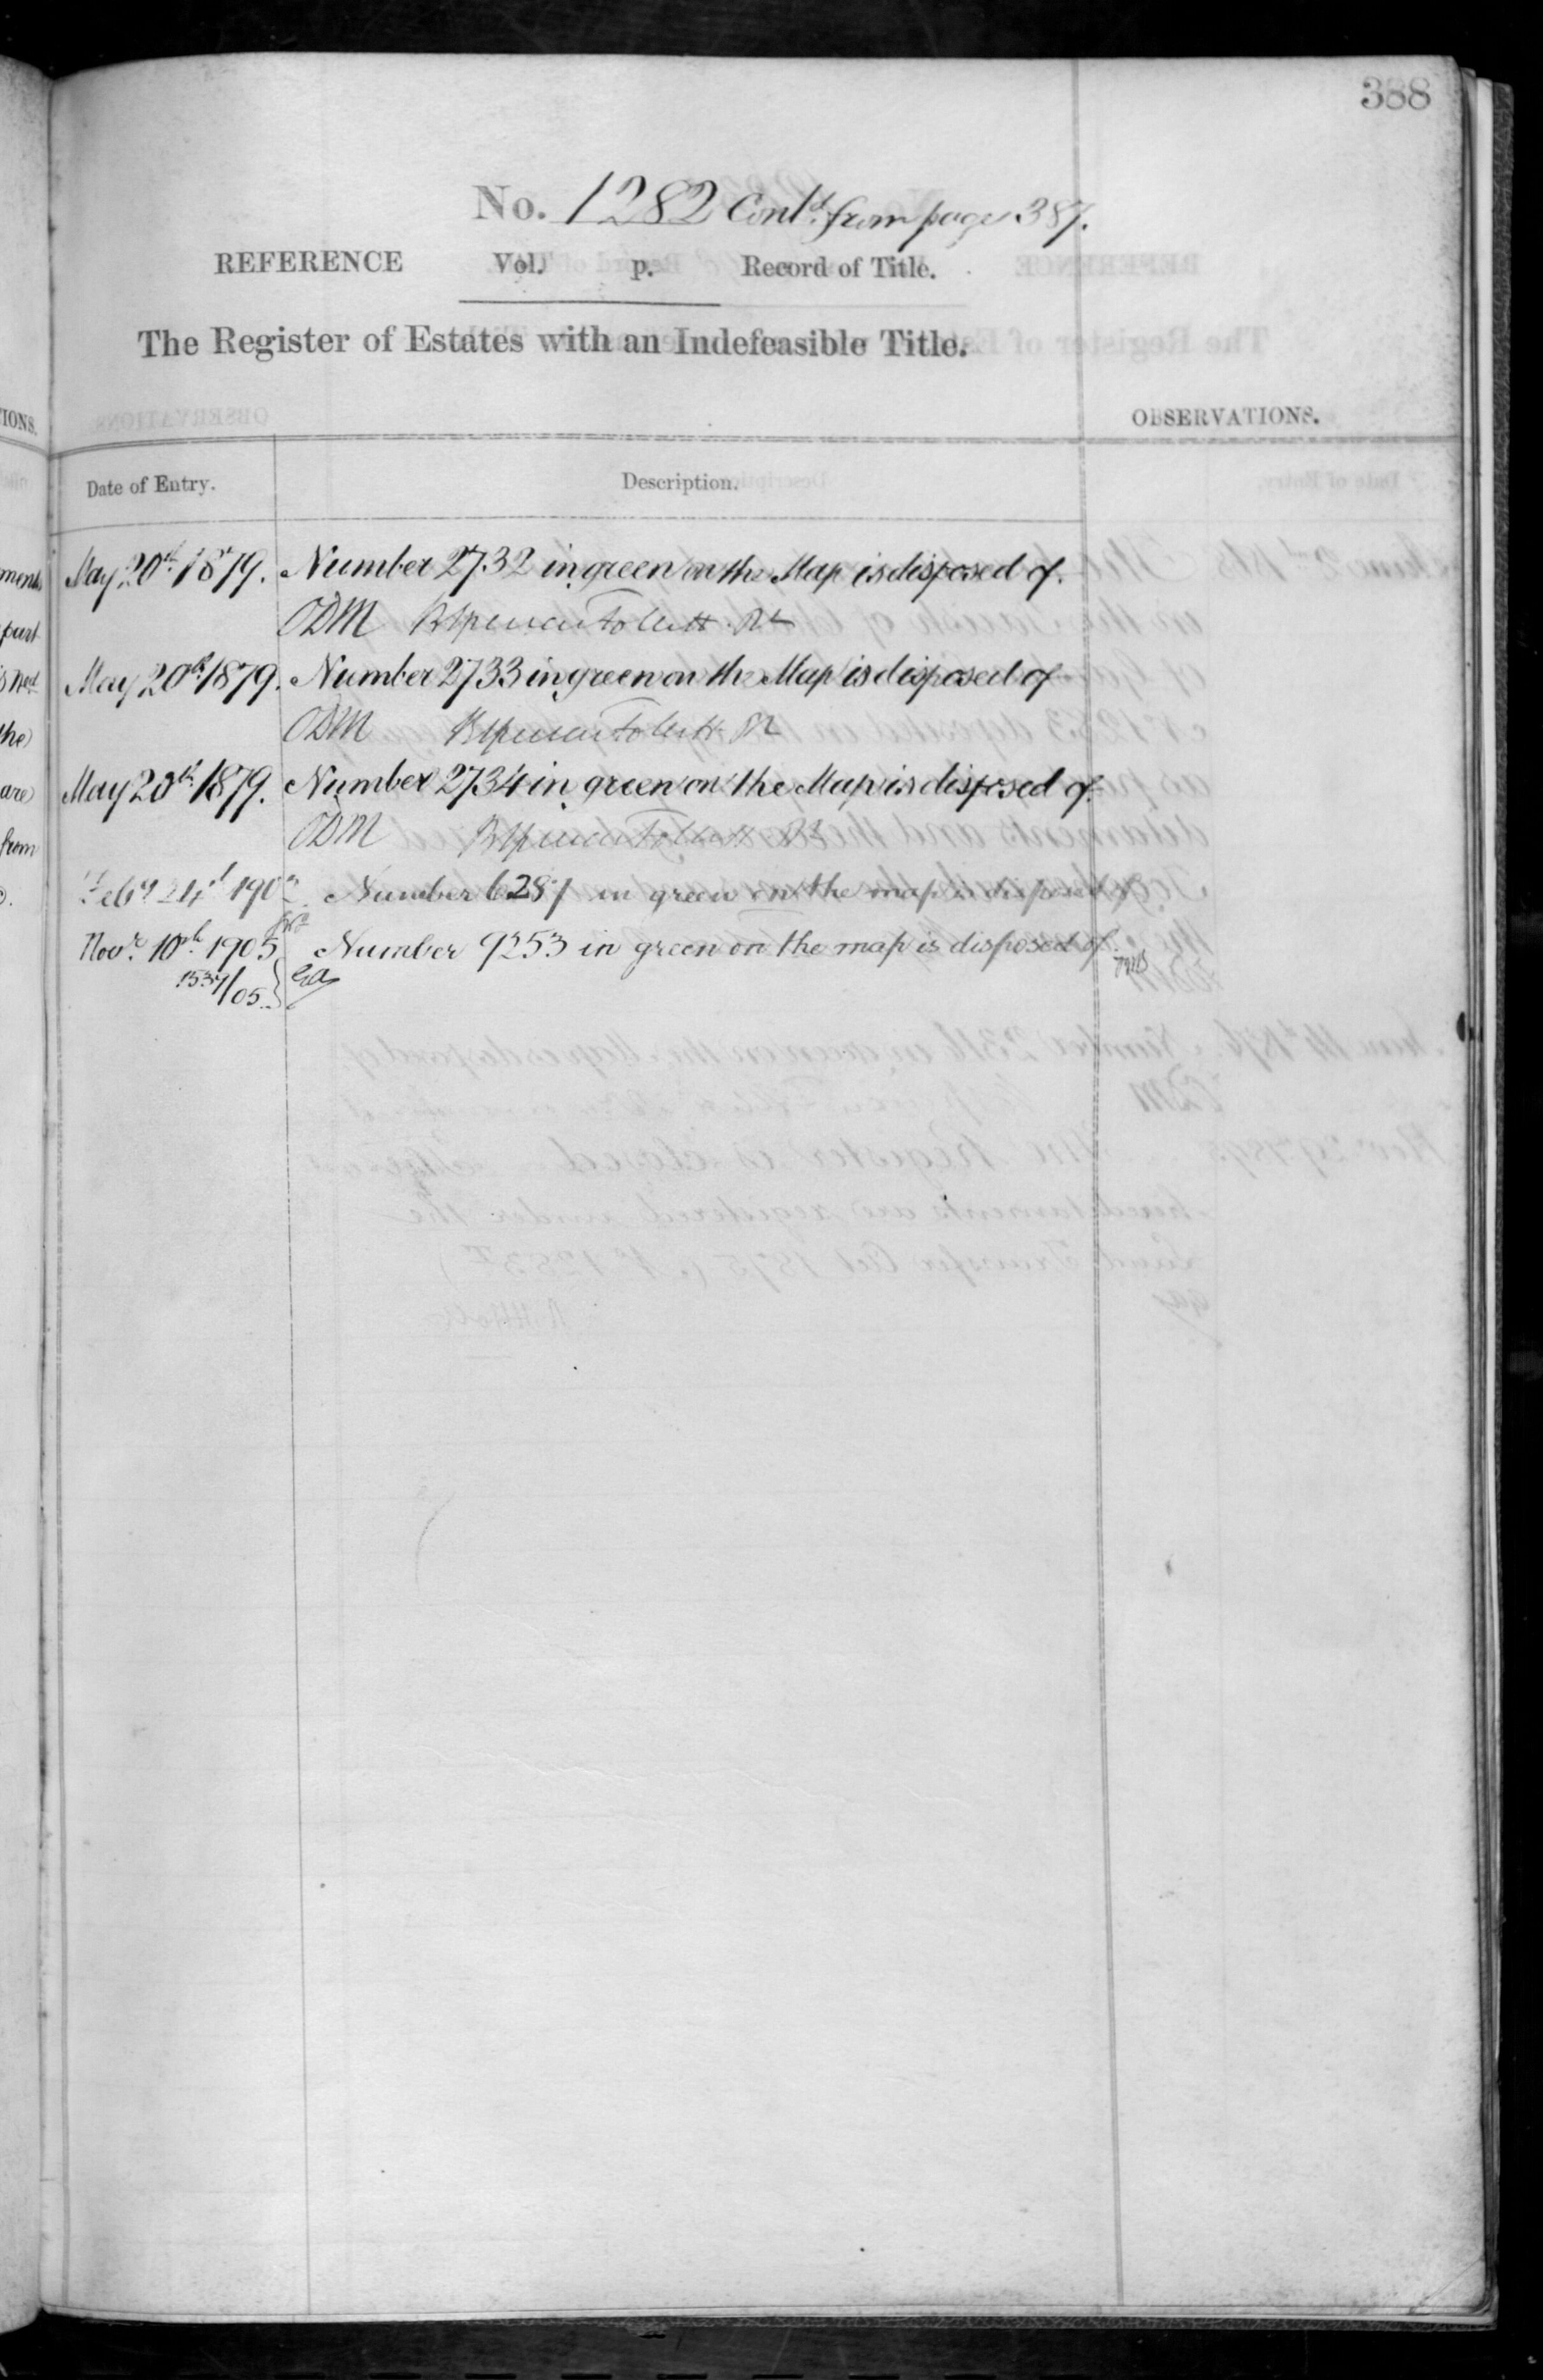 388
No. 1282 Contd. from page 387.
REFERENCE Vol. p. Record of Title.
The Register of Estates with an Indefeasible Title.
OBSERVATIONS.
Date of Entry. Description.
May 20th 1879. Number 2732 in green on the Map is disposed of.
ODM
May 20th 1879. Number 2733 in green on the Map is disposed of
ODM
May 20th 1879. Number 2734 in green on the Map is disposed of.
ODM
Feby 24th Number 6287 in green on the map is disposed of
Novr. 10th 1905 Number 9253 in green on the map is disposed of.
1537/05
IONS.
ments
part
the)
are)
from